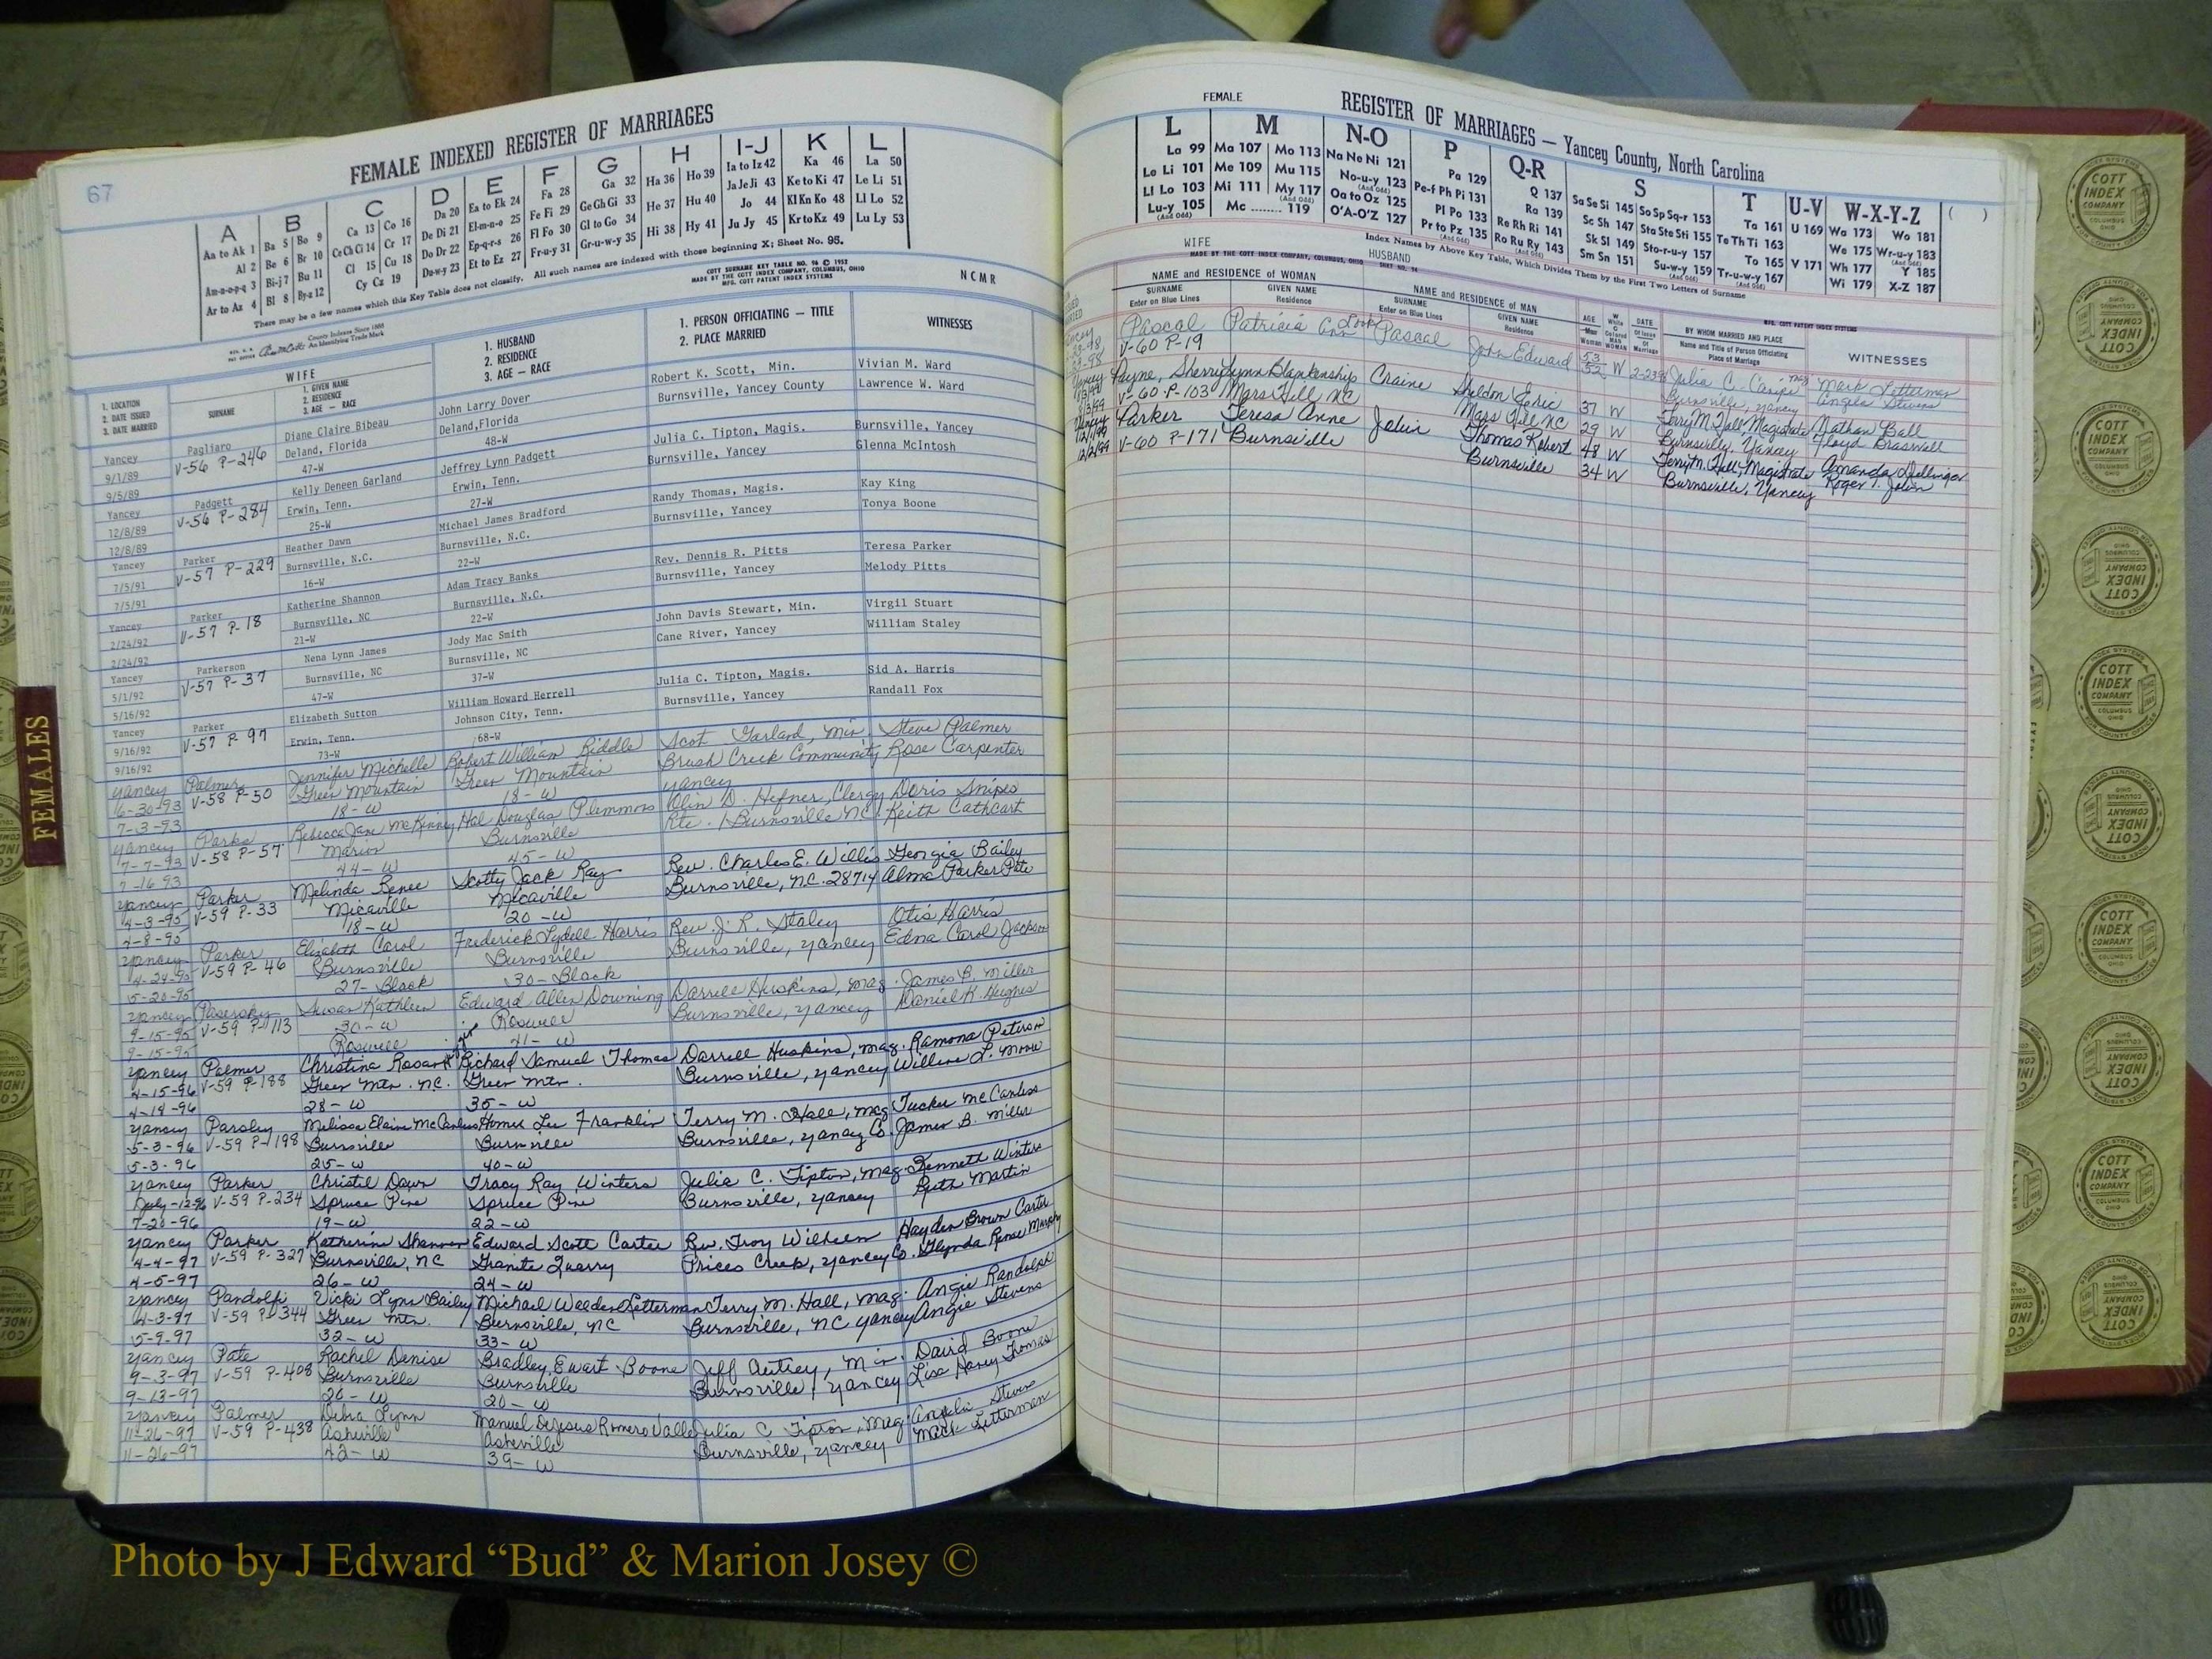 67
FEMALE INDEXED REGISTER OF MARRIAGES
A
Aa to Ak 1
Al 2
Am-n-o-p-q 3
Ar to Az 4
B
Ba 5 Bo 9
Be 6 Br 10
Bi-j 7 Bu 11
Bl 8 By-z 12
C
Ca 13 Co 16
Ce Ch Ci 14 Cr 17
Cl 15 Cu 18
Cy Cz 19
D
Da 20
De Di 21
Do Dr 22
Du-w-y 23
E
Ea to Ek 24
El-m-n-o 25
Ep-q-r-s 26
Et to Ez 27
F
Fa 28
Fe Fi 29
Fl Fo 30
Fr-u-y 31
G
Ga 32
Ge Gh Gi 33
Gl to Go 34
Gr-u-w-y 35
H
Ha 36 Ho 39
He 37 Hu 40
Hi 38 Hy 41
I-J
Ia to Iz 42
Ja Je Ji 43
Jo 44
Ju Jy 45
K
Ka 46
Ke to Ki 47
Kl Kn Ko 48
Kr to Kz 49
L
La 50
Le Li 51
Ll Lo 52
Lu Ly 53
There may be a few names which this Key Table does not classify. All such names are indexed with those beginning X; Sheet No. 95.
County Indexes Since 1888
An Identifying Trade Mark
COTT SURNAME KEY TABLE NO. 96 © 1957
MADE BY THE COTT INDEX COMPANY, COLUMBUS, OHIO
MFG. COTT PATENT INDEX SYSTEMS
NCMR
1. LOCATION
2. DATE ISSUED
3. DATE MARRIED
WIFE
SURNAME
1. GIVEN NAME
2. RESIDENCE
3. AGE — RACE
1. HUSBAND
2. RESIDENCE
3. AGE — RACE
1. PERSON OFFICIATING - TITLE
2. PLACE MARRIED
WITNESSES
Yancey Pagliaro Diane Claire Bibeau John Larry Dover Robert K. Scott, Min. Vivian M. Ward
9/1/89 V-56 P-246 Deland, Florida Deland,Florida Burnsville, Yancey County Lawrence W. Ward
9/5/89 47-W 48-W
Yancey Padgett Kelly Deneen Garland Jeffrey Lynn Padgett Julia C. Tipton, Magis. Burnsville, Yancey
12/8/89 V-56 P-284 Erwin, Tenn. Erwin, Tenn. Burnsville, Yancey Glenna McIntosh
12/8/89 25-W 27-W
Yancey Parker Heather Dawn Michael James Bradford Randy Thomas, Magis. Kay King
7/5/91 V-57 P-229 Burnsville, N.C. Burnsville, N.C. Burnsville, Yancey Tonya Boone
7/5/91 16-W 22-W
Yancey Parker Katherine Shannon Adam Tracy Banks Rev. Dennis R. Pitts Teresa Parker
2/24/92 V-57 P-18 Burnsville, NC Burnsville, N.C. Burnsville, Yancey Melody Pitts
2/24/92 21-W 22-W
Yancey Parkerson Nena Lynn James Jody Mac Smith John Davis Stewart, Min. Virgil Stuart
5/1/92 V-57 P-37 Burnsville, NC Burnsville, NC Cane River, Yancey William Staley
5/16/92 47-W 37-W
Yancey Parker Elizabeth Sutton William Howard Herrell Julia C. Tipton, Magis. Sid A. Harris
9/16/92 V-57 P-97 Erwin, Tenn. Johnson City, Tenn. Burnsville, Yancey Randall Fox
9/16/92 73-W 68-W
Yancey Palmer Jennifer Michelle Robert William Riddle Scot Garland, Min Steve Palmer
6-30-93 V-58 P-50 Green Mountain Green Mountain Brush Creek Community Rose Carpenter
7-3-93 18-W 18-W Yancey
Yancey Parks Rebecca Jane McKinney Hal Douglas Plemmons Olin D. Hefner, Clergy Doris Snipes
7-7-93 V-58 P-57 Marion Burnsville Rte. 1 Burnsville NC Keith Cathcart
7-16-93 44-W 45-W
Yancey Parker Melinda Renee Scotty Jack Ray Rev. Charles E. Willis Georgia Bailey
4-3-95 V-59 P-33 Micaville Micaville Burnsville, N.C. 28714 Alma Parker Pate
4-8-95 18-W 20-W
Yancey Parker Elizabeth Carol Frederick Lydell Harris Rev. J. R. Staley Otis Harris
4-24-95 V-59 P-46 Burnsville Burnsville Burnsville, Yancey Edna Carol Jackson
5-20-95 27-Black 30-Black
Yancey Susan Kathleen Edward Allen Downing Darrell Huskins, Mag. James B. Miller
9-15-95 V-59 P-113 30-W Roswell Burnsville, Yancey Daniel K. Hughes
9-15-95 Roswell 41-W
Yancey Palmer Christina Richard Samuel Thomas Darrell Huskins, Mag. Ramona Peterson
4-15-96 V-59 P-188 Green Mtn. NC. Green Mtn. Burnsville, Yancey Willene L. Moore
4-19-96 28-W 35-W
Yancey Parsley Melissa Elaine McCanless Homer Lee Franklin Terry M. Hall, Mag Tucker McCanless
5-3-96 V-59 P-198 Burnsville Burnsville Burnsville, Yancey Co. James B. Miller
5-3-96 25-W 40-W
Yancey Parker Christil Dawn Tracy Ray Winters Julia C. Tipton, Mag. Kenneth Winters
July-12-96 V-59 P-234 Spruce Pine Spruce Pine Burnsville, Yancey Ruth Martin
7-20-96 19-W 22-W
Yancey Parker Katherine Shannon Edward Scott Carter Rev. Troy Wilhelm Hayden Brown Carter
4-4-97 V-59 P-327 Burnsville, NC Granite Quarry Prices Creek, Yancey Co. Glynda Renae Murphy
4-5-97 26-W 24-W
Yancey Pandolfi Vicki Lynn Bailey Michael Letterman Terry M. Hall, Mag. Angie Randolph
4-3-97 V-59 P-344 Green Mtn. Burnsville, NC Burnsville, NC Yancey Angie Stevens
5-9-97 32-W 33-W
Yancey Pate Rachel Denise Bradley Ewart Boone Jeff Autrey, Min. David Boone
9-3-97 V-59 P-408 Burnsville Burnsville Burnsville, Yancey Lisa Haney Thomas
9-13-97 20-W 20-W
Yancey Palmer Debra Lynn Manuel DeJesus Romero Valle Julia C Tipton, Mag. Angelia Stevens
11-26-97 V-59 P-438 Asheville Asheville Burnsville, Yancey Mack Letterman
11-26-97 42-W 39-W
FEMALES
FEMALE
REGISTER OF MARRIAGES — Yancey County, North Carolina
L
La 99
Le Li 101
Ll Lo 103
Lu-y 105
(And Odd)
M
Ma 107 Mo 113
Me 109 Mu 115
Mi 111 My 117
(And Odd)
Mc ........ 119
N-O
Na Ne Ni 121
No-u-y 123
(And Odd)
Oa to Oz 125
O'A-O'Z 127
P
Pa 129
Pe-f Ph Pi 131
Pl Po 133
Pr to Pz 135
(And Odd)
Q-R
Q 137
Ra 139
Re Rh Ri 141
Ro Ru Ry 143
S
Sa Se Si 145 So Sp Sq-r 153
Sc Sh 147 Sta Ste Sti 155
Sk Sl 149 Sto-r-u-y 157
Sm Sn 151 Su-w-y 159
(And Odd)
T
Ta 161
Te Th Ti 163
To 165
Tr-u-w-y 167
(And Odd)
U-V
U 169
V 171
W-X-Y-Z
Wa 173 Wo 181
We 175 Wr-u-y 183
(And Odd)
Wh 177 Y 185
Wi 179 X-Z 187
( )
Index Names by Above Key Table, Which Divides Them by the First Two Letters of Surname
MADE BY THE COTT INDEX COMPANY, COLUMBUS, OHIO
SHEET NO. 94
MFG. COTT PATENT INDEX SYSTEMS
WIFE
HUSBAND
NAME and RESIDENCE of WOMAN
SURNAME
Enter on Blue Lines
GIVEN NAME
Residence
NAME and RESIDENCE of MAN
SURNAME
Enter on Blue Lines
GIVEN NAME
Residence
AGE
Man
Woman
W
White
C
Colored
MAN
WOMAN
DATE
Of Issue
Of
Marriage
BY WHOM MARRIED AND PLACE
Name and Title of Person Officiating
Place of Marriage
WITNESSES
Pascal Patricia Ann Pascal John Edward 53 W Julia C. Mark Letterman
V-60 P-19 52 Burnsville, Yancey Angela Stevens
Yancey Payne, Sherry Lynn Blankenship Craine Sheldon Eric 37 W Terry M. Hall Magistrate Nathan Ball
V-60 P-103 Mars Hill NC Mars Hill NC 29 W Burnsville, Yancey Floyd Braswell
Yancey Parker Teresa Anne Thomas Robert 48 W Terry M. Hall, Magistrate Amanda Dellinger
V-60 P-171 Burnsville Burnsville 34 W Burnsville, Yancey Roger T.
COTT INDEX COMPANY
COLUMBUS OHIO
Photo by J Edward “Bud” & Marion Josey ©